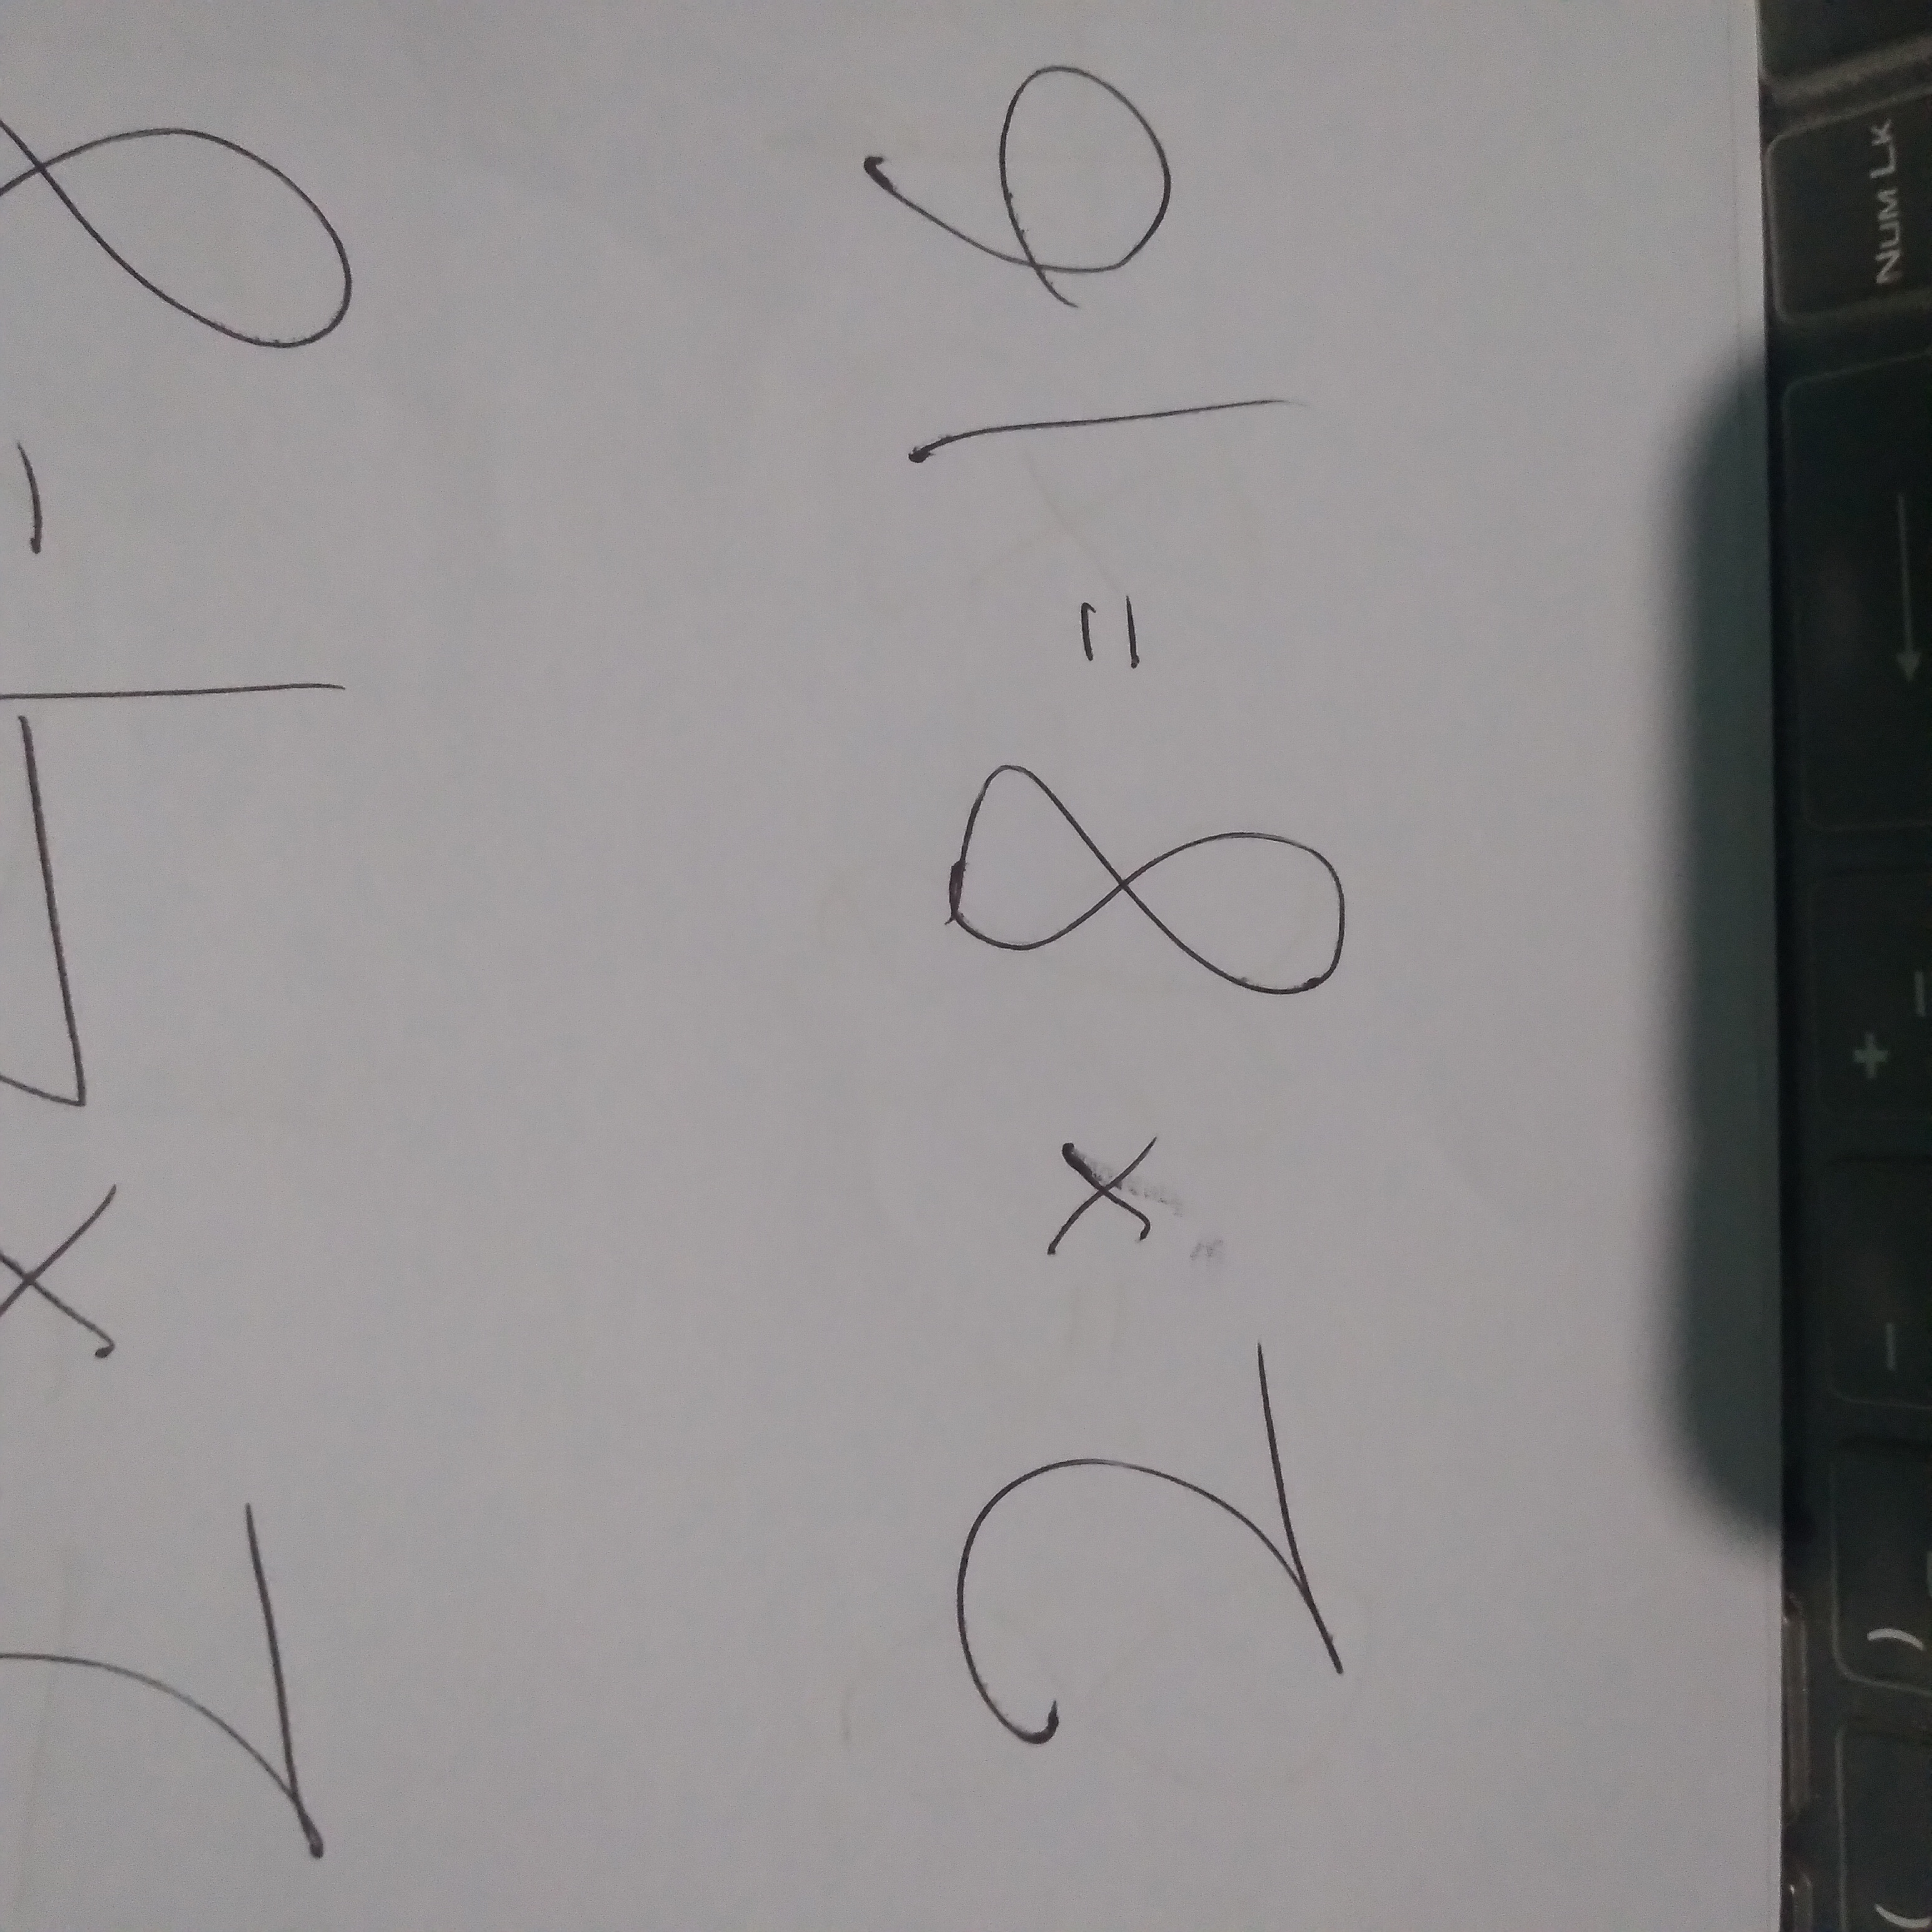 2 × 4 = 8
2 × 8 = 16
( ) - + = ←
NUM LK